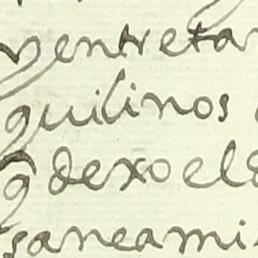 y entretan
quilinos
q dexo el
saneami